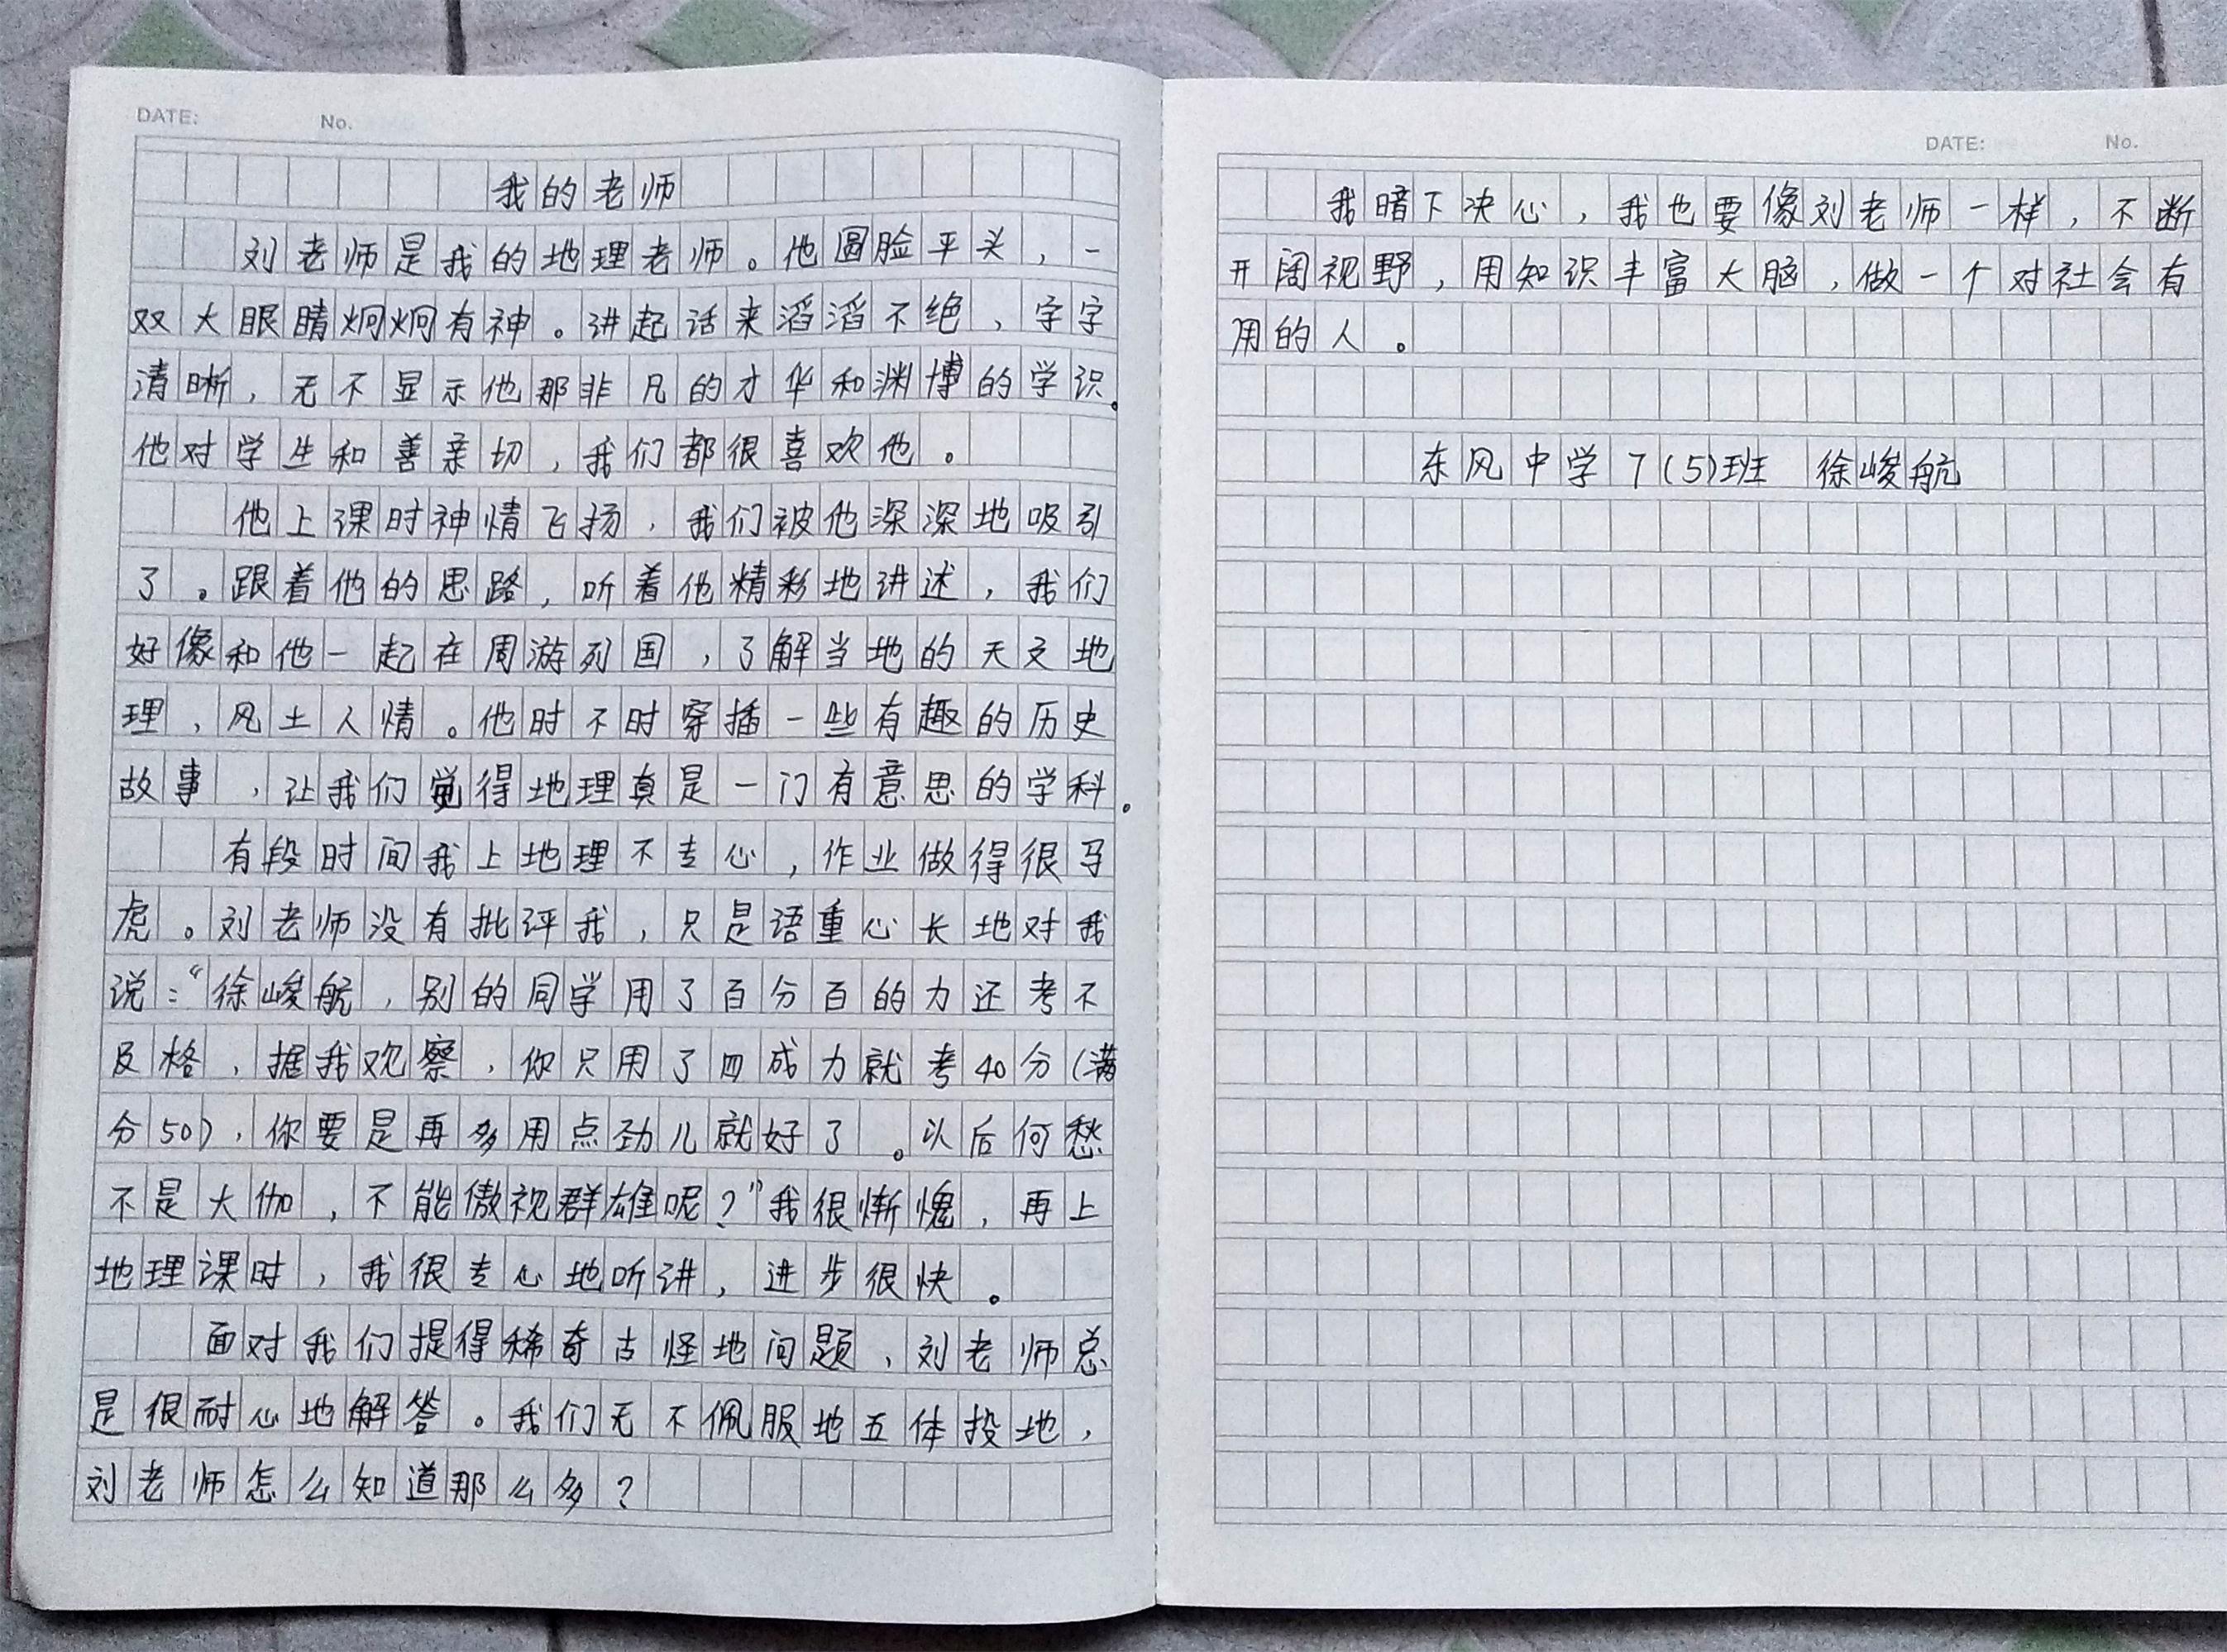 DATE: No.
我的老师
刘老师是我的地理老师。他圆脸平头，一
双大眼睛炯炯有神。讲起话来滔滔不绝，字字
清晰，无不显示他那非凡的才华和渊博的学识。
他对学生和善亲切，我们都很喜欢他。
他上课时神情飞扬，我们被他深深地吸引
了。跟着他的思路，听着他精彩地讲述，我们
好像和他一起在周游列国，了解当地的天文地
理、风土人情。他时不时穿插一些有趣的历史
故事，让我们觉得地理真是一门有意思的学科。
有段时间我上地理不专心，作业做得很马
虎。刘老师没有批评我，只是语重心长地对我
说："徐峻航，别的同学用了百分百的力还考不
及格，据我观察，你只用了四成力就考40分(满
分50)，你要是再多用点劲儿就好了。以后何愁
不是大伽，不能傲视群雄呢？"我很惭愧，再上
地理课时，我很专心地听讲，进步很快。
面对我们提得稀奇古怪地问题，刘老师总
是很耐心地解答。我们无不佩服地五体投地，
刘老师怎么知道那么多？
DATE: No.
我暗下决心，我也要像刘老师一样，不断
开阔视野，用知识丰富大脑，做一个对社会有
用的人。
东风中学7(5)班 徐峻航